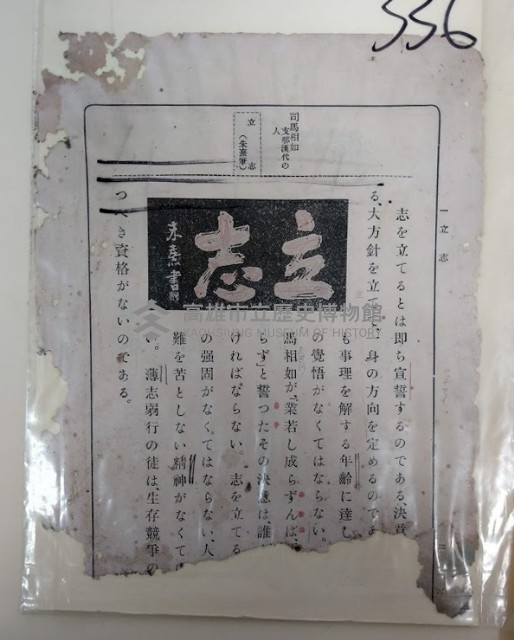 556
一 立志
司馬相如
支那漢代の
人
立志
(朱熹筆)
立志
朱熹書
志を立てるとは即ち宣誓するのである、決意
る、大方針を立てて、身の方向を定めるのであ
も事理を解する年齡に達し
の覺悟がなくてはならない。
馬相如が、業若し成らずんば、
らず」と誓つたその決意は、誰
ければならない。志を立てる
の强固がなくてはならない、人
難を苦としない精神がなくて
い。薄志弱行の徒は、生存競爭の
つべき資格がないのである。
高雄市立歷史博物館
KAOHSIUNG MUSEUM OF HISTORY